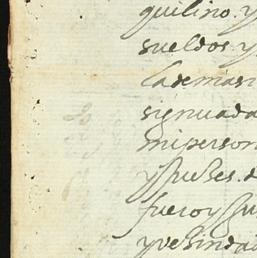 quilino. y
sueldos. y
la demas
signuada
mi person
y
fuero y
y vesindad